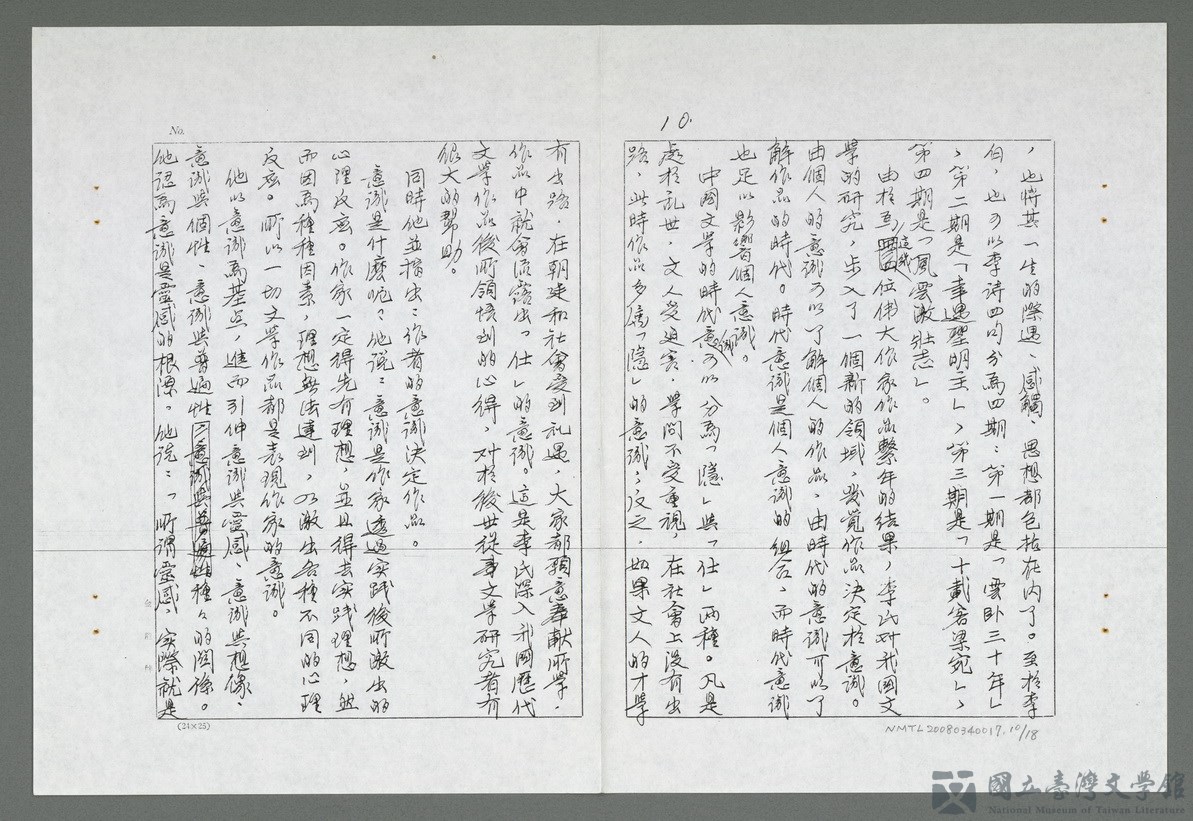 10.
，也將其一生的際遇、感觸、思想都包括在內了。至於李
白，也可以李詩四句分為四期：第一期是「雲臥三十年」
，第二期是「幸遇聖明主」，第三期是「十載客梁苑」，
第四期是「風雲激壯志」。
由於對這幾位偉大作家作品繫年的結果，李氏對我國文
學的研究，步入了一個新的領域，發覺作品決定於意識。
由個人的意識可以了解個人的作品，由時代的意識可以了
解作品的時代。時代意識是個人意識的組合，而時代意識
也足以影響個人意識。
中國文學的時代意識可以分為「隱」與「仕」兩種。凡是
處於乱世，文人受迫害，學問不受重視，在社會上沒有出
路，此時作品多屬「隱」的意識；反之，如果文人的才學
No.
有出路，在朝廷和社會受到礼遇，大家都願意奉献所學，
作品中就會流露出「仕」的意識。這是李氏深入我國歷代
文學作品後所領悟到的心得，对於後世從事文學研究者有
很大的幫助。
同時他並指出：作者的意識決定作品。
意識是什麼呢？他說：意識是作家透過实践後所激出的
心理反应。作家一定得先有理想，並且得去实践理想，然
而因為種種因素，理想無法達到，乃激出各種不同的心理
反应。所以一切文學作品都是表現作家的意識。
他以意識為基点，進而引伸意識與靈感、意識與想像、
意識與個性、意識與普遍性種々的関係。
他認為意識是靈感的根源。他說：「所謂靈感、实際就是
(24×25)
NMTL20080340017.10/18
國立臺灣文學館
National Museum of Taiwan Literature